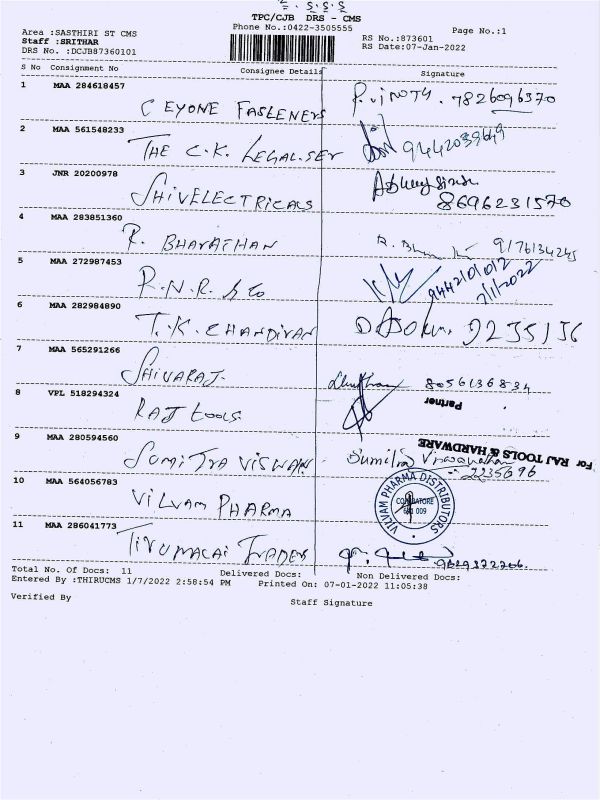 TPC/CJB DRS - CMS
Phone No.:0422-3505555
Page No.:1
Area :SASTHIRI ST CMS
Staff :SRITHAR
DRS No. :DCJB87360101
RS No.:873601
RS Date:07-Jan-2022
S No Consignment No Consignee Details Signature
1 MAA 284618457
CEYONE FASLENERS P.VINOTH. 7826096370
2 MAA 561548233
THE C.K. LEGAL.SER 9442039649
3 JNR 20200978
SHIVELECTRICALS
8696231570
4 MAA 283851360
R. BHARATHAN 9176134245
5 MAA 272987453
R.N.R. & Co 9442101012
7/1/2022
6 MAA 282984890
T.K. CHANDIRAN 2235136
7 MAA 565291266
SHIVARAJ. 8056136834
8 VPL 518294324
RAJ tools
Partner
For RAJ TOOLS & HARDWARE
9 MAA 280594560
SUMITRA VISWAN. Sumitra Viswanathan
2235696
10 MAA 564056783
VILVAM PHARMA
VILVAM PHARMA DISTRIBUTORS
COIMBATORE
641 009
11 MAA 286041773
TIRUMALAI TRADERS
Total No. Of Docs: 11 Delivered Docs: Non Delivered Docs:
Entered By :THIRUCMS 1/7/2022 2:58:54 PM Printed On: 07-01-2022 11:05:38
Verified By Staff Signature